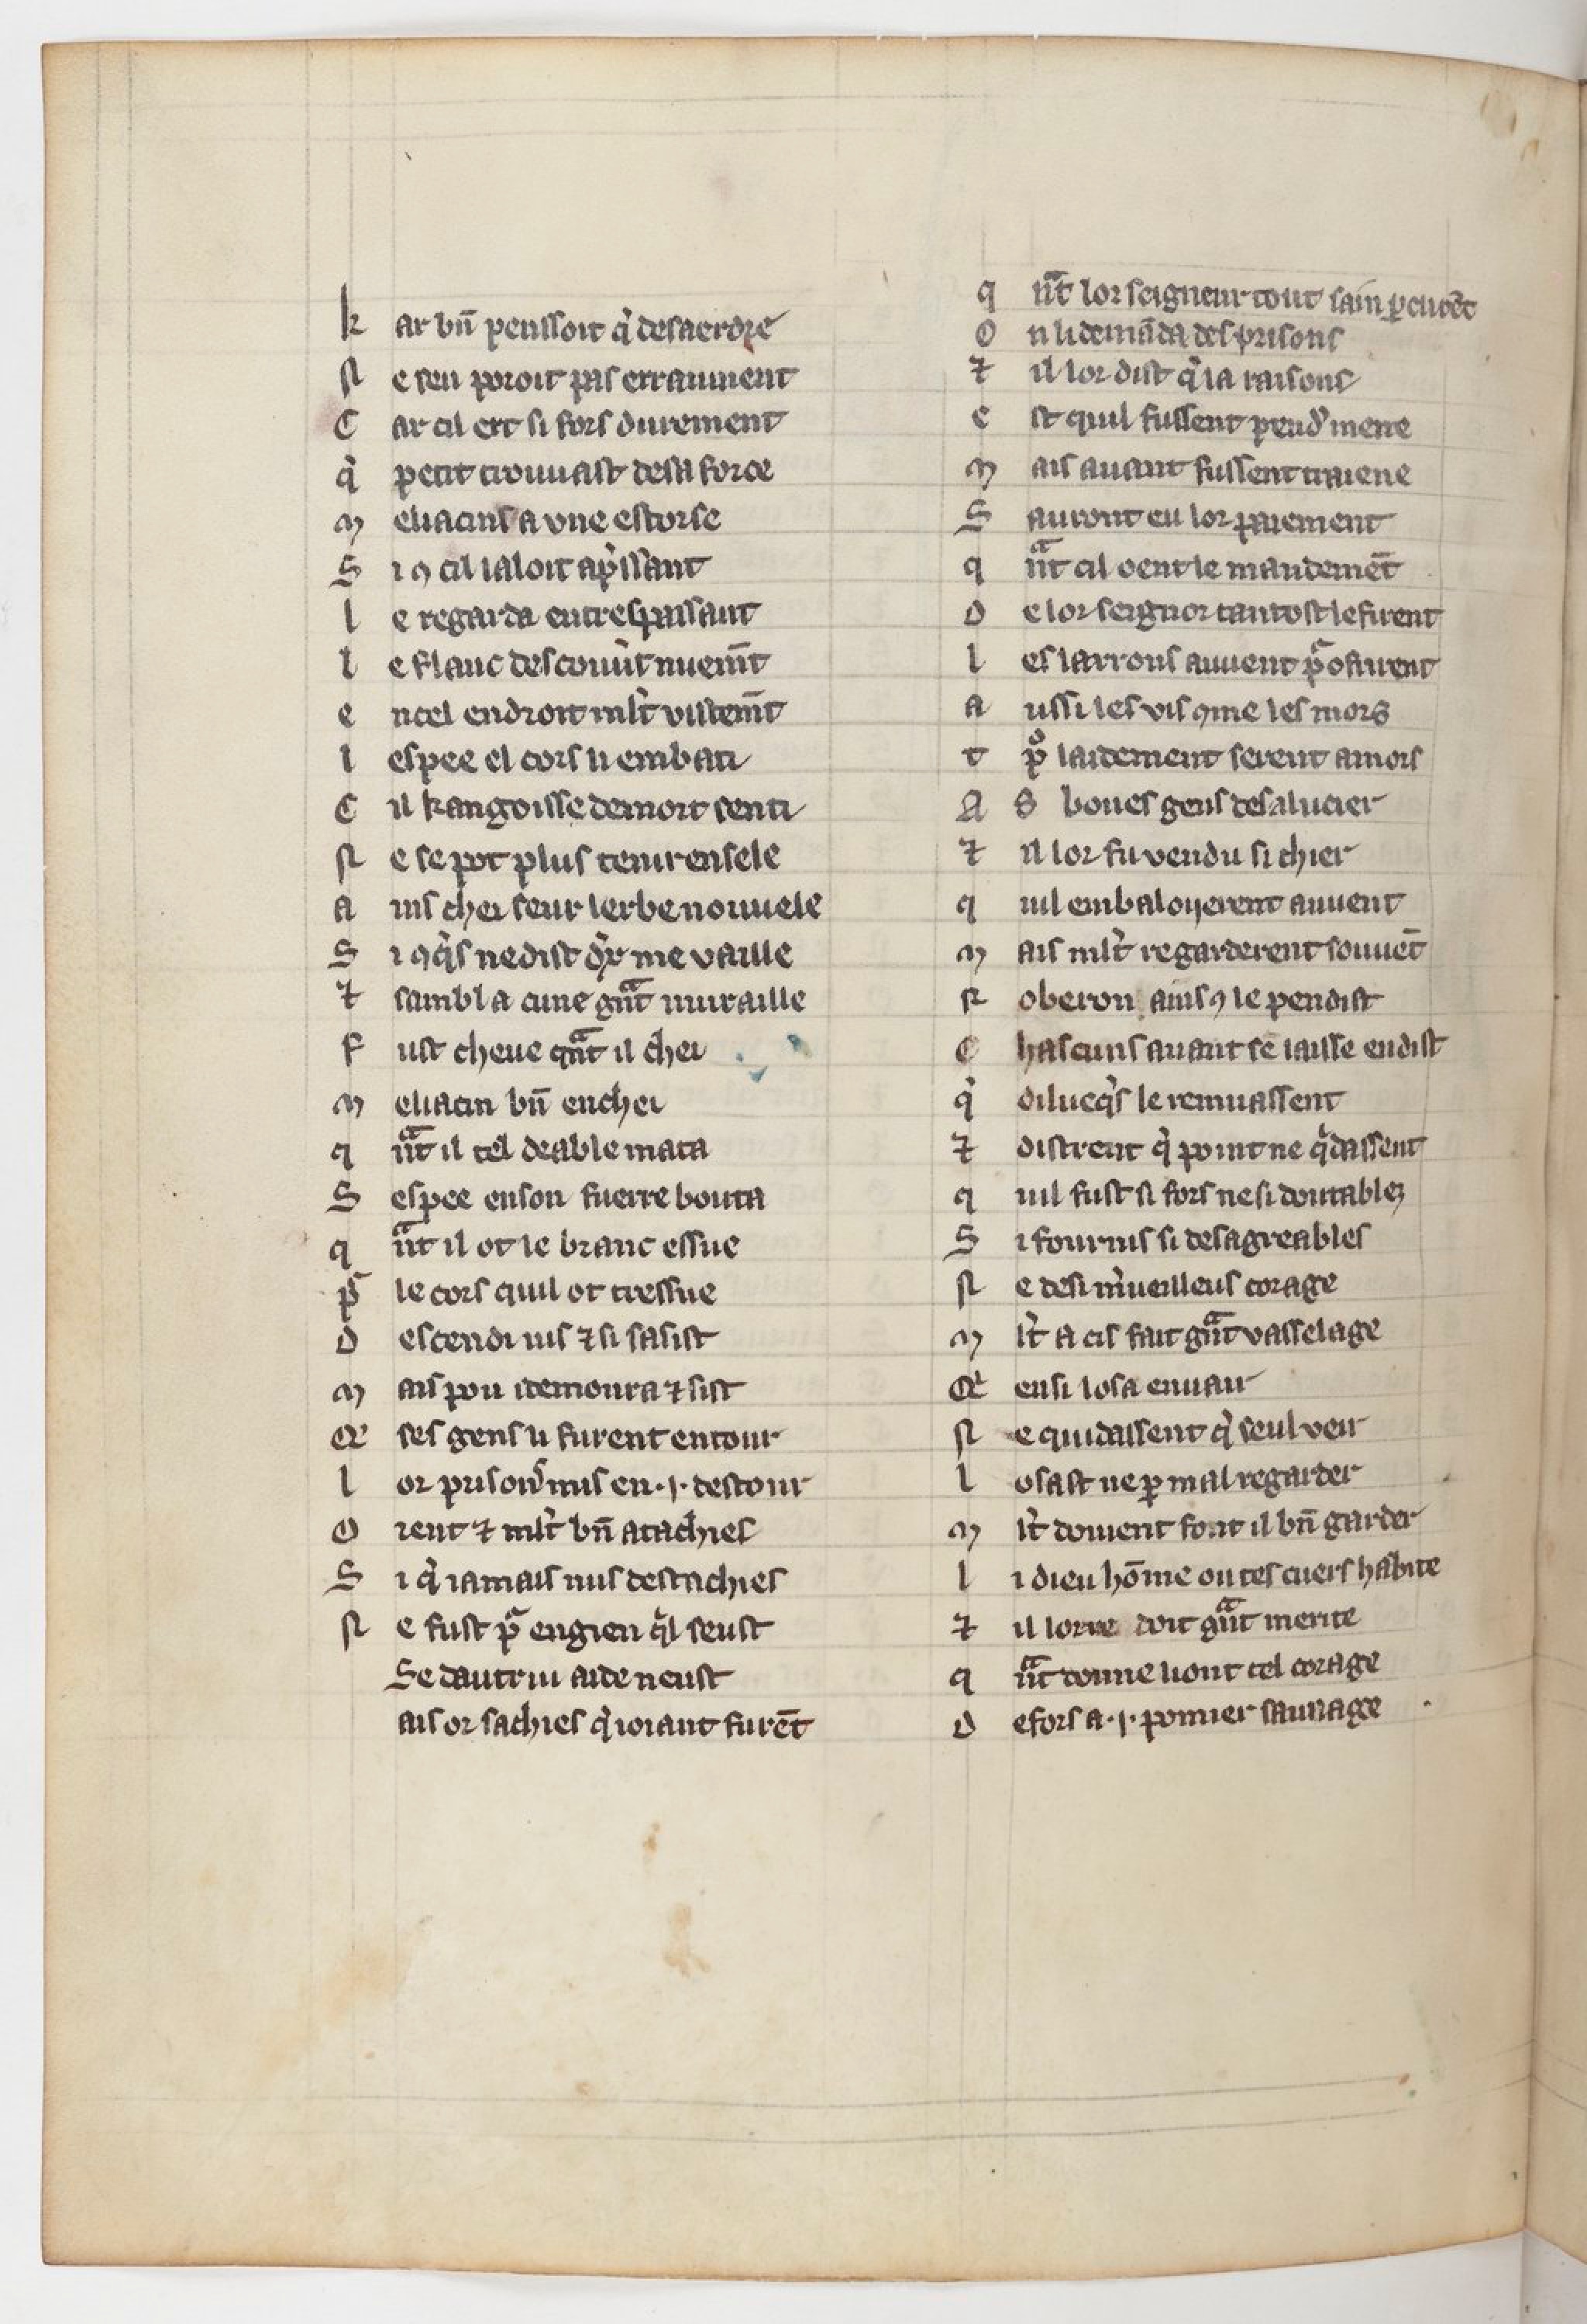 k ar bn̄ penssoit q̉ desaerdre
N e sen poroit pas erraument
C ar cil ert si fors durement
q̉ petit trouuast de sa force
M eliacins a vne estorse
S i ꝯ cil laloit ap̉ssant
l e regarda en trespassant
l e flanc descouu̓t nuem̄t
e n cel endroit ml̓t vistem̄t
l espee el cors li embati
C il kangoisse de mort senti
N e se pot plus tenir en sele
a ins chei seur lerbe nouuele
S i ꝯq̉s ne dist
⁊ sambla cune gͣnt muraille
F ust cheue qͣnt il chei
M eliacin bn̄ enchei
q ͣnt il tel deable mata
S espee en son fuerre bouta
q ͣnt il ot le branc essue
pͬ le cors quil ot tressue
D escendi ius ⁊ si sasist
M ais pou i demoura ⁊ sist
Q̉ ses gens li furent entour
l or prisonˢ mis en .j. destour
O rent ⁊ ml̓t bn̄ atachies
S i q̉ iamais nus destachies
N e fust pͬ engien qͥl seust
Se dautrui aide neust
ais or sachies q̉ ioiant furēt
q ͣnt lor seigneur tout sain ꝑceurēt
O n li demāda des prisons
⁊ il lor dist q̉ la raisons
e st quil fussent pendͬ mene
M ais auant fussent traiene
S auront eu lor paiement
q ͣnt cil oent le mandemēt
D e lor seignor tantost le firent
l es larrons auuent pͬofirent
a ussi les vis ꝯme les mors
t ᵖ̊ laidement serent amors
A s boues gens desalucier
⁊ il lor fu vendu si chier
q uil enbaloyerent au uent
M ais ml̓t regarderent souuēt
R oberon ains ꝯ le pendist
C hascuns auant se laisse en dist
q̉ dilueq̉s le remuassent
⁊ distrent q̉ point ne qͥdassent
q uil fust si fors ne si doutables
S i fournis si desagreables
N e de si m̉ueilleus corage
M l̓t a cis fait gͣnt vasselage
Q̉ ensi losa enuair
N e quidassent q̉ seul veir
l osast ne ꝑ mal regarder
M l̓t doiuent font il bn̄ garder
l i dieu hōme ou tes cuers habite
⁊ il lor en doit gͣnt merite
q ͣnt donne li ont tel corage
D e fors a .j. pomier sauuage